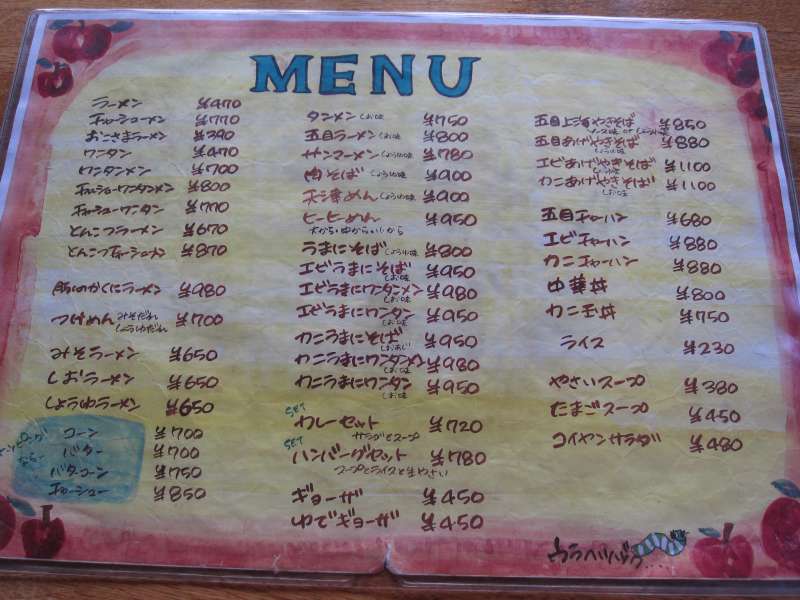 MENU
ラーメン ¥470
チャーシューメン ¥770
おこさまラーメン ¥390
ワンタン ¥470
ワンタンメン ¥700
チャーシューワンタンメン ¥800
チャーシューワンタン ¥770
とんこつラーメン ¥670
とんこつチャーシューメン ¥870
豚のかくにラーメン ¥980
つけめん みそだれ しょうゆだれ ¥700
みそラーメン ¥650
しおラーメン ¥650
しょうゆラーメン ¥650
コーン ¥700
バター ¥700
バターコーン ¥750
チャーシュー ¥850
タンメン しお味 ¥750
五目ラーメン しお味 ¥800
サンマーメン しょうゆ味 ¥780
肉そば しょうゆ味 ¥900
天津めん しょうゆ味 ¥900
ヒーヒーめん ¥950
大から・中から・いしから
うまにそば しょうゆ味 ¥800
エビうまにそば しお味 ¥950
エビうまにワンタンメン しお味 ¥980
エビうまにワンタン しお味 ¥950
カニうまにそば しおあじ ¥950
カニうまにワンタンメン しお味 ¥980
カニうまにワンタン しお味 ¥950
SET カレーセット ¥720
サラダとスープ
SET ハンバーグセット ¥780
スープとライスと生やさい
ギョーザ ¥450
ゆでギョーザ ¥450
五目上海やきそば ¥850
ソース味 or しょうゆ味
五目あげやきそば しょうゆ味 ¥880
エビあげやきそば しお味 ¥1100
カニあげやきそば しお味 ¥1100
五目チャーハン ¥680
エビチャーハン ¥880
カニチャーハン ¥880
中華丼 ¥800
カニ玉丼 ¥750
ライス ¥230
やさいスープ ¥380
たまごスープ ¥450
コイヤンサラダ ¥480
ウラへツヅク....